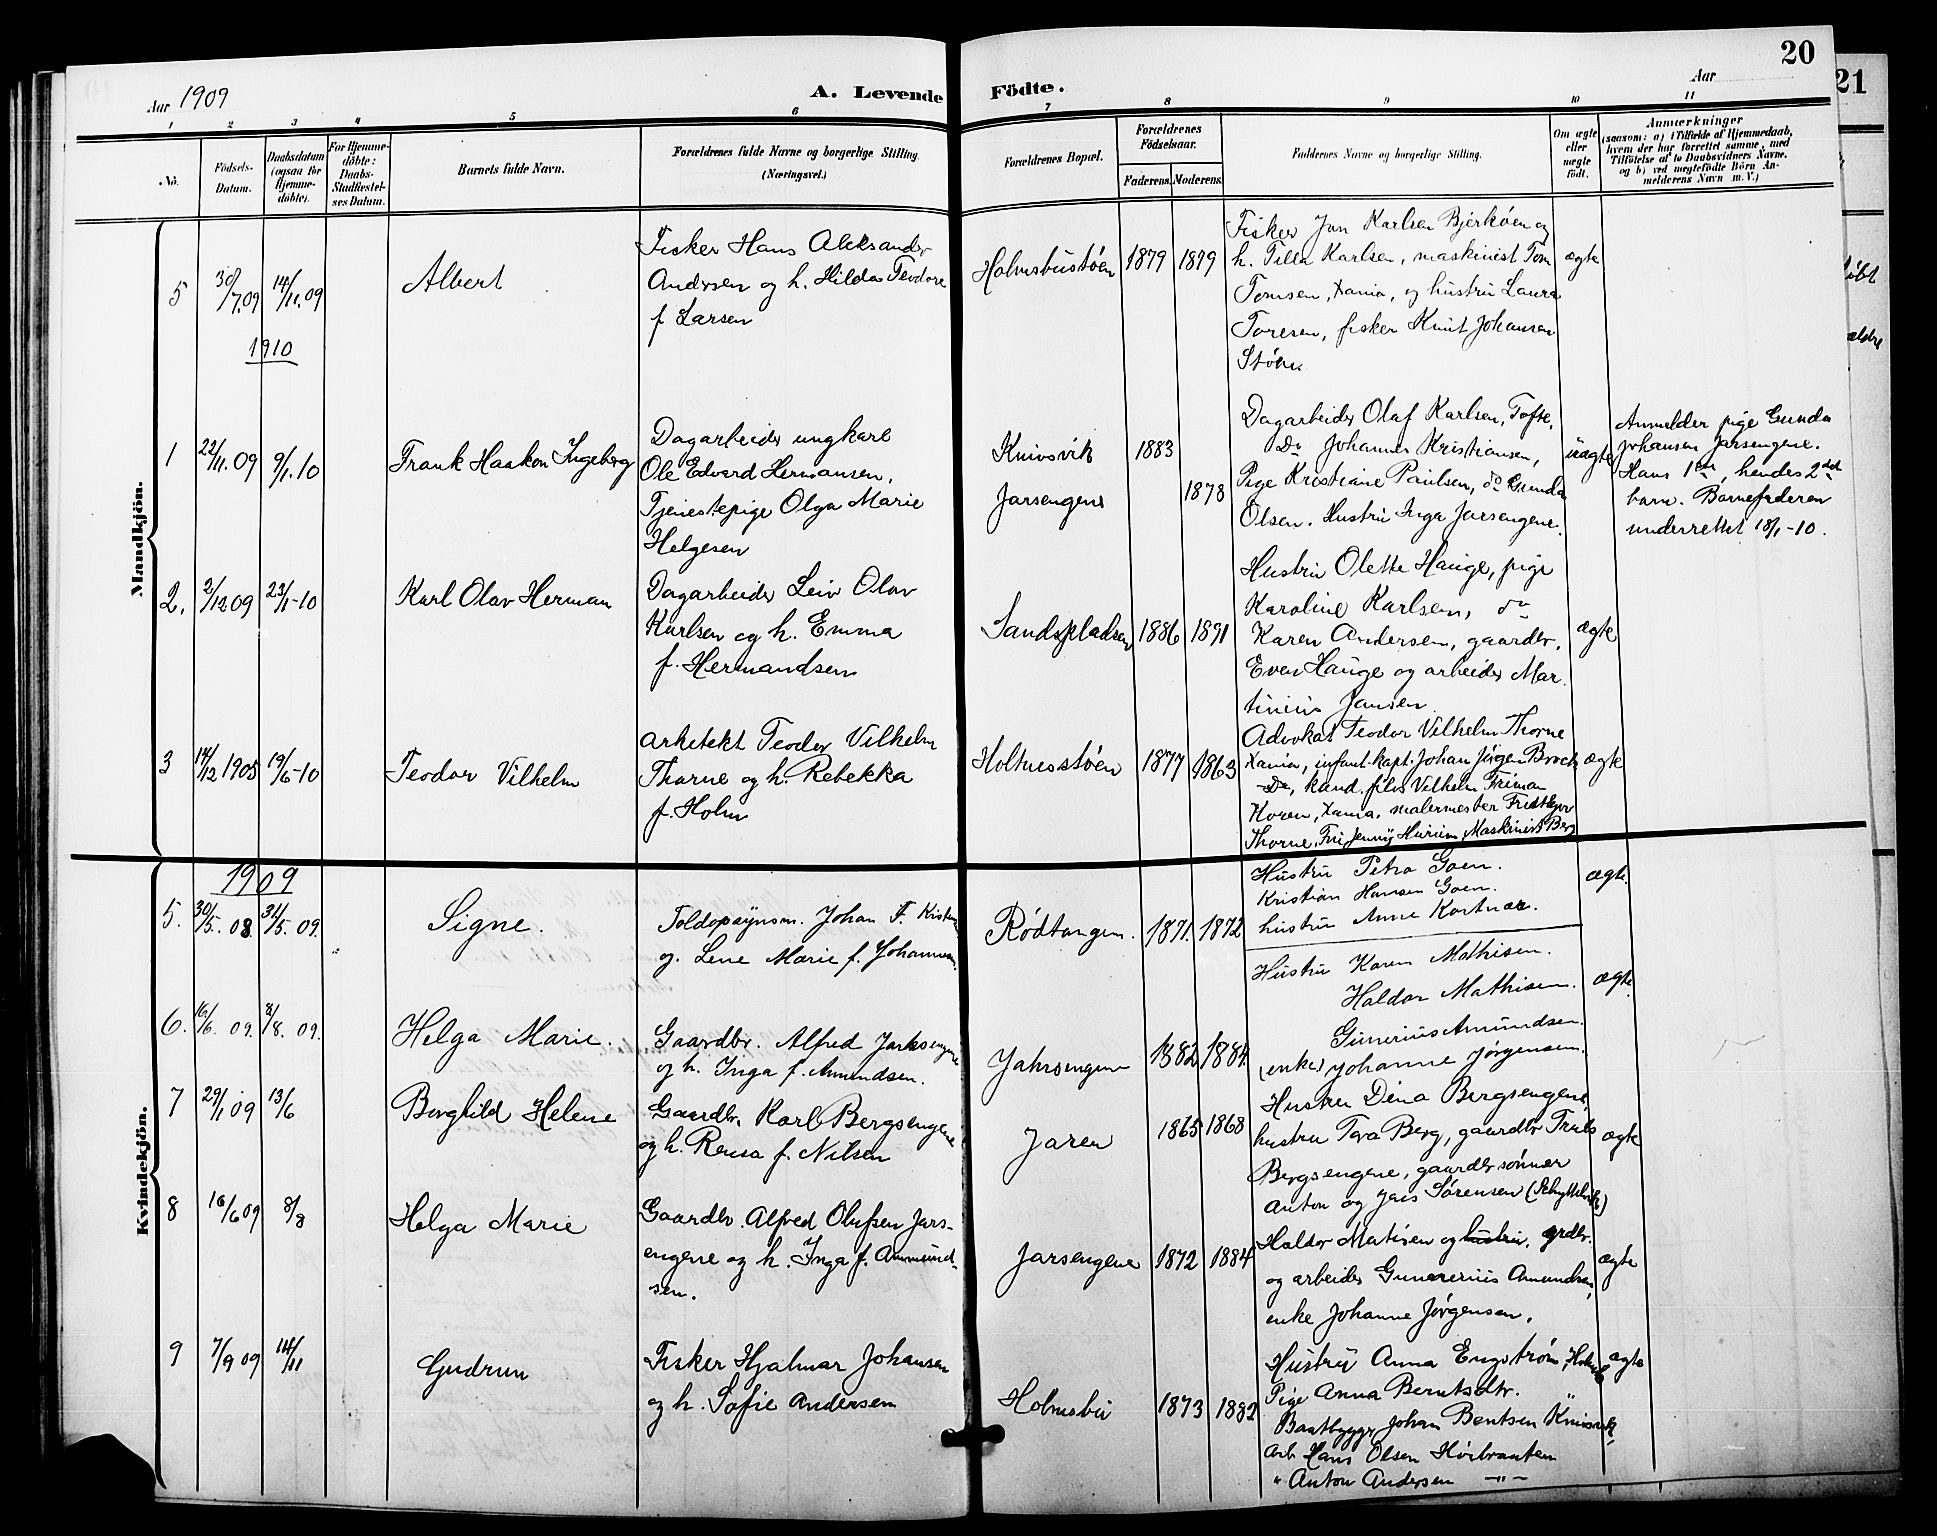 20
21
Aar 1909
A. Levende Födte.
Aar
1 2 3 4 5 6 7 8 9 10 11
No.
Födsels-Datum.
Daabsdatum (ogsaa for Hjemmedöbte).
For Hjemmedöbte: Daabs-Stadfæstelses Datum.
Barnets fulde Navn.
Forældrenes fulde Navne og borgerlige Stilling.
(Næringsvei.)
Forældrenes Bopæl.
Forældrenes Födselsaar.
Faderens. Moderens.
Faddernes Navne og borgerlige Stilling.
Om ægte eller uægte födt.
Anmærkninger
(saasom: a) i Tilfælde af Hjemmedaab,
hvem der har forrettet samme, med
Tilföielse af to Daabsvidners Navne.
og b) ved uægtefödte Börn An-
melderens Navn m. V.)
Mandkjön.
5 30/7.09 14/11.09 Albert
Fisker Hans Aleksander
Andersen og h. Hilda Teodore
f Larsen
Holmsbustøen 1879 1879
Fisker Jon Karlsen Bjerkøen og
h. Tilla Karlsen, maskinist Tom
Tomsen, Xania, og hustru Laura
Toresen, fisker Knut Johansen
Støen
ægte
1910
1 22/11.09 9/1.10 Frank Haakon Ingeberg
Dagarbeider ungkarl
Ole Edvard Hermansen,
Tjenestepige Olga Marie
Helgesen
Knivsvik 1883
Jarsengene 1878
Dagarbeider Olaf Karlsen, Tofte,
Do Johannes Kristiansen,
Pige Kristiane Paulsen, do Gunda
Olsen. Hustru Inga Jarsengene.
uægte
Anmelder pige Gunda
Johansen Jarsengene.
Hans 1ste, hendes 2det
barn. Barnefaderen
underrettet 18/1-10.
2. 2/12 09 23/1-10 Karl Olav Herman
Dagarbeider Leiv Olav
Karlsen og h. Emma
f. Hermandsen
Sandspladsen 1886 1891
Hustru Olette Hauge, pige
Karoline Karlsen, do
Karen Andersen, gaardbr.
Even Hauge og arbeider Mar-
tinius Jansen
ægte
3 14/12 1905 19/6-10 Teodor Vilhelm
Arkitekt Teodor Vilhelm
Thorne og h. Rebekka
f. Holm
Holtnesstøen 1877 1863
Advokat Teodor Vilhelm Thorne
Xania, infant.kapt. Johan Jörgen Broch
Do, kand. filos Vilhelm Friman
Koren, Xania, malermester Fridtjov
Thorne, Fru Jenny Hurum, Maskinist Berg
ægte
Kvindekjön.
1909
5. 30/5. 08. 31/5. 09. Signe.
Toldopsynsm. Johan F.
og. Lene Marie f. Johannesen.
Rödtangen. 1871. 1872
Hustru Petra Goen.
Kristian Hansen Goen.
hustru Anne Kortnæs.
ægte.
6. 16/6. 09. 8/8. 09. Helga Marie.
Gaardbr. Alfred Jarsengene
og h. Inga f. Amundsen.
Jahrsengene 1882 1884.
Hustru Karen Mathisen.
Haldor Mathisen.
Gunerius Amundsen.
(enke) Johanne Jørgensen.
ægte.
7 29/1 09 13/6 Borghild Helene
Gaardbr. Karl Bergsengene
og h. Rensa f. Nilsen
Jaren 1865 1868
Hustru Dina Bergsengene,
hustru Tora Berg, gaardbr Truls
Bergsengene, gaardbr sønner
Anton og Jens Sørensen
ægte
8 16/6 09 8/8 Helga Marie
Gaardbr. Alfred Olufsen Jars-
engene og h. Inga f. Ammund-
sen.
Jarsengene 1872 1884
Haldor Matisen og hustru, grdbr.
og arbeider Gunererius Amundsen,
enke Johanne Jørgensen.
ægte
9 7/9 09 14/11 Gudrun
Fisker Hjalmar Johansen
og h. Sofie Andersen
Holmsbu 1873 1882
Hustru Anna Engstrøm, Holmsb
Pige Anna Berntsdtr. "
Baatbygger Johan Bentsen Knivsvik,
Arb. Hans Olsen Høibraaten
" Anton Andersen —"—
ægte